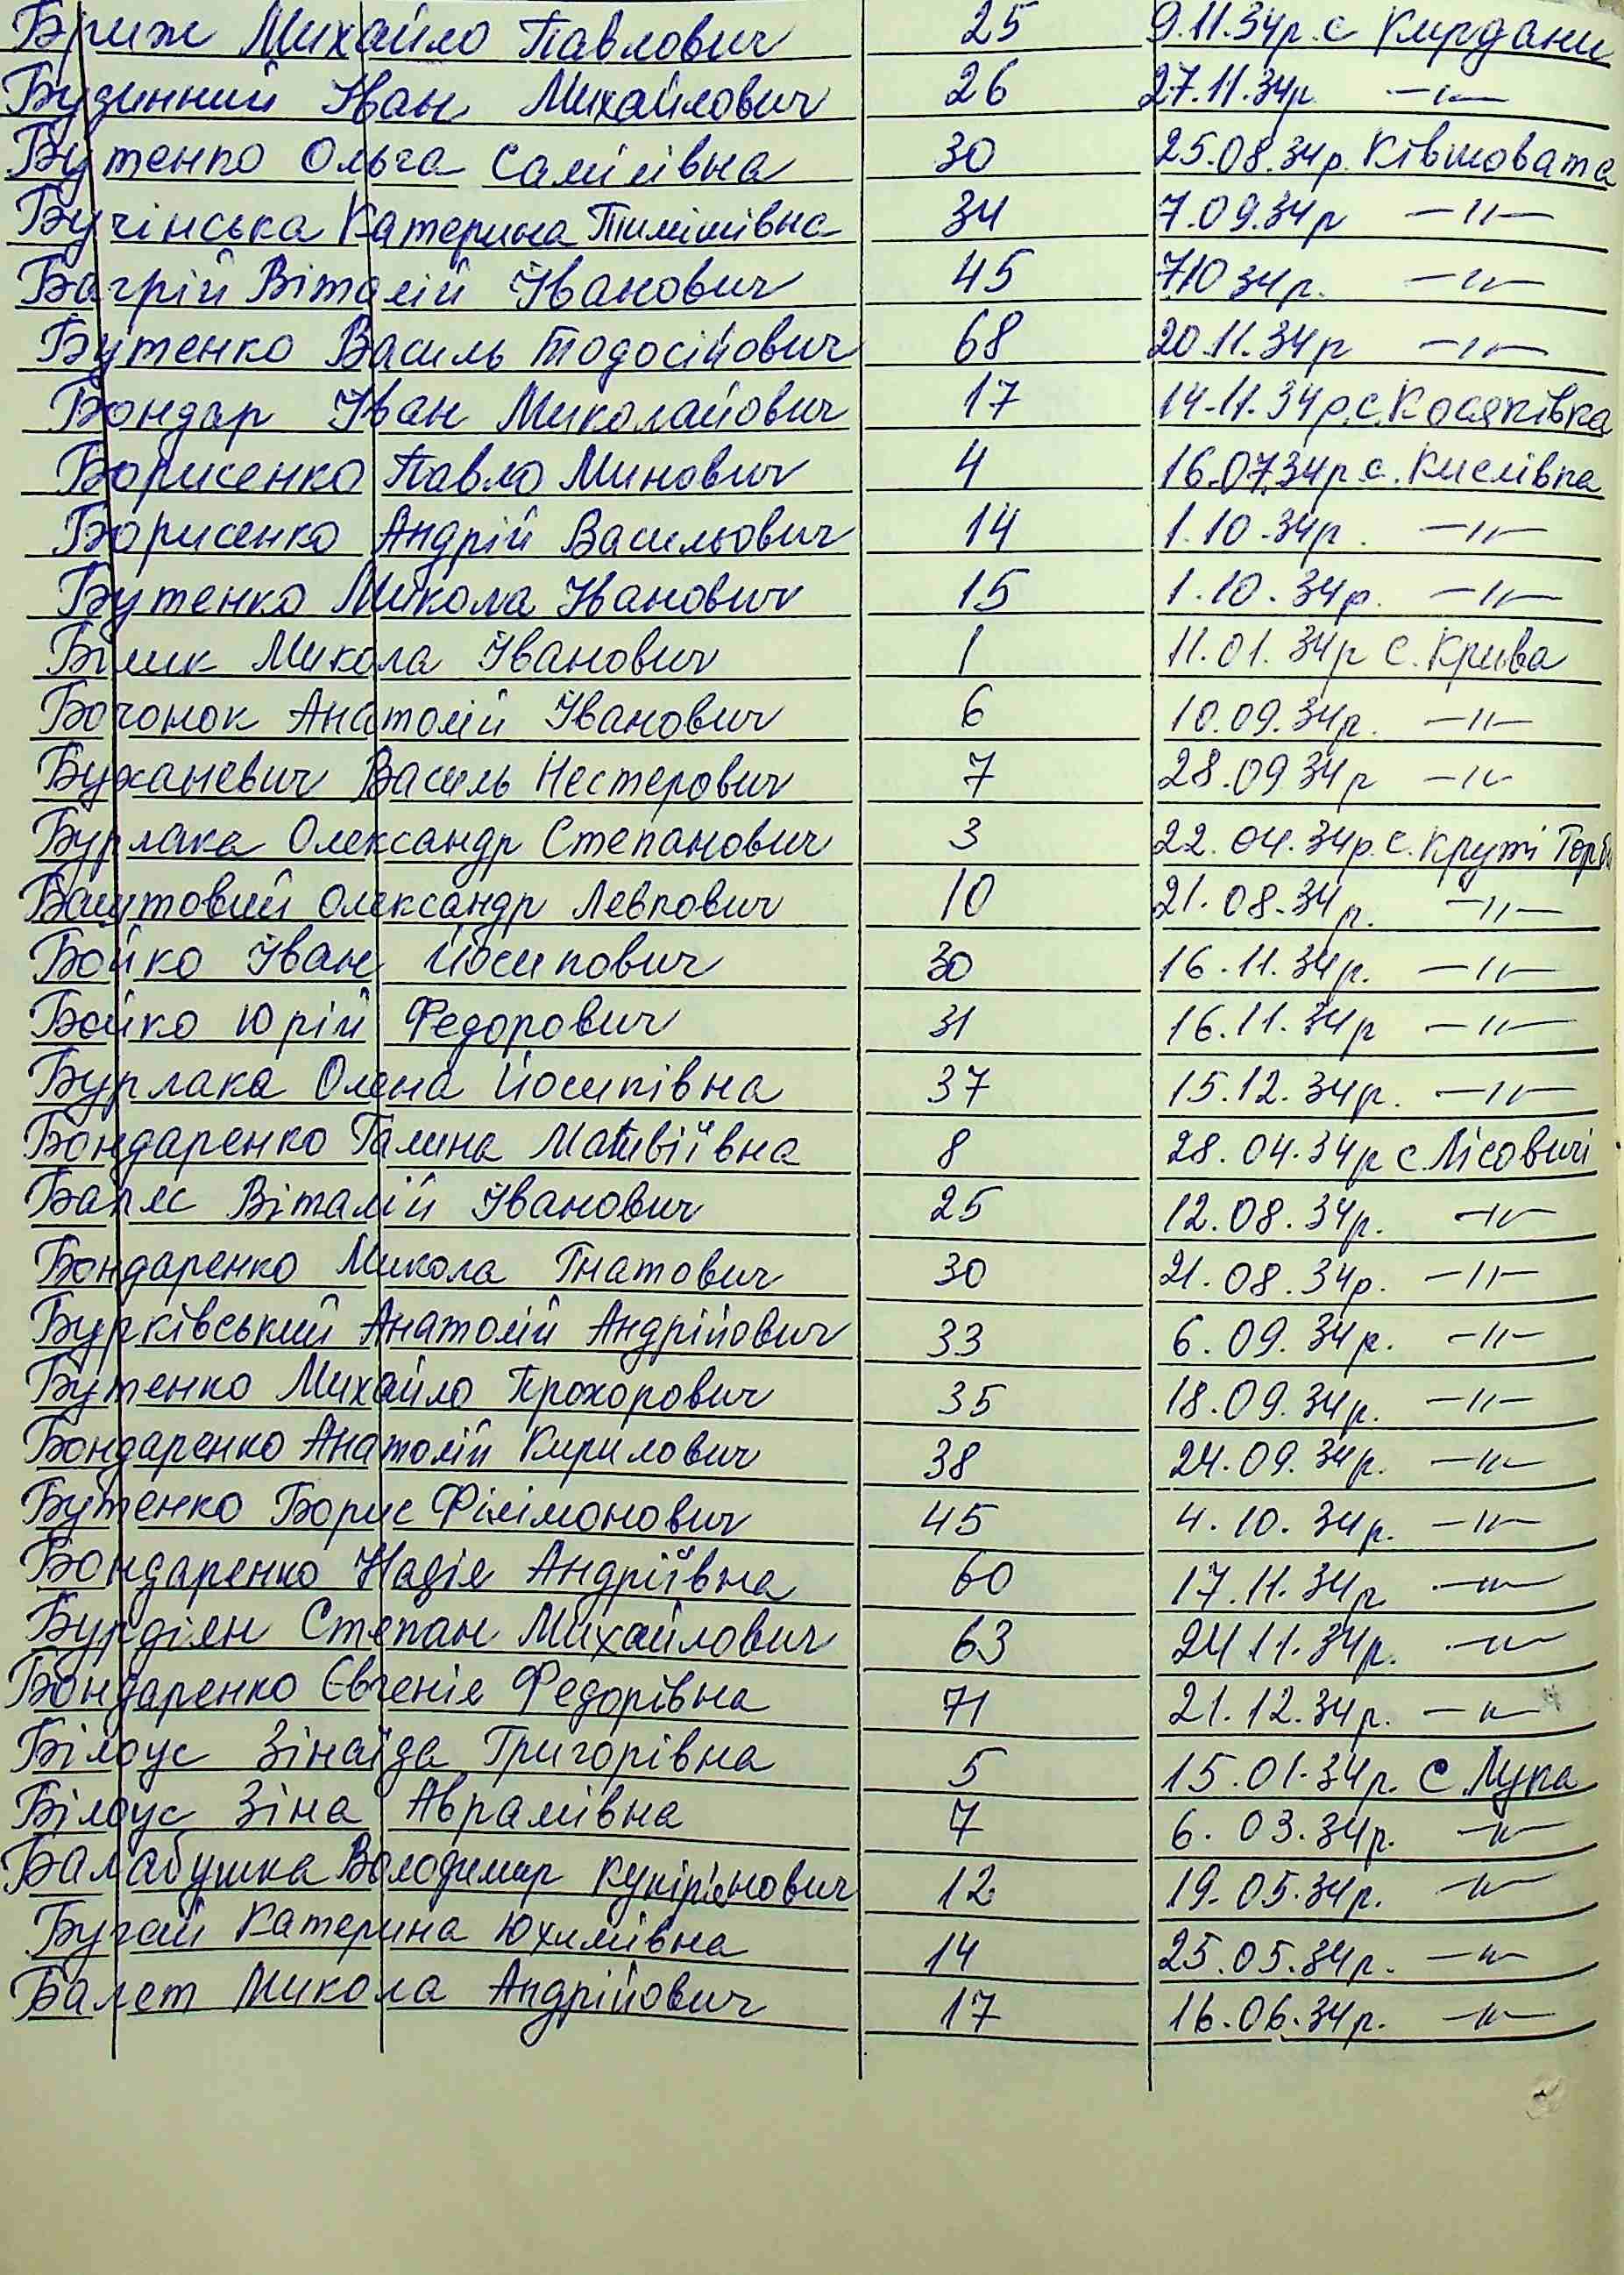 Бриж Михайло Павлович 25 9.11.34р. с Кирдани
Будинний Іван Михайлович 26 27.11.34р. —〃—
Бутенко Ольга Саміліівна 30 25.08.34р. Ківшовата
Бучінська Катерина Тимішівна 34 7.09.34р —〃—
Багрій Віталій Іванович 45 7.10 34р. —〃—
Бутенко Василь Тодосійович 68 20.11.34р —〃—
Бондар Іван Миколайович 17 14.11.34р.с.Косяківка
Борисенко Павло Минович 4 16.07.34р с. Кислівка
Борисенко Андрій Васильович 14 1.10.34р. —〃—
Бутенко Микола Іванович 15 1.10.34р. —〃—
Білик Микола Іванович 1 11.01.34р с. Крива
Бочонок Анатолій Іванович 6 10.09.34р. —〃—
Буханевич Василь Нестерович 7 28.09.34р —〃—
Бурлака Олександр Степанович 3 22.04.34р. с. Круті Горби
Баштовий Олександр Левкович 10 21.08.34р. —〃—
Бойко Іван Йосипович 30 16.11.34р. —〃—
Бойко Юрій Федорович 31 16.11.34р —〃—
Бурлака Олена Йосипівна 37 15.12.34р. —〃—
Бондаренко Галина Матвіївна 8 28.04.34р с Лісовичі
Баряс Віталій Іванович 25 12.08.34р. —〃—
Бондаренко Микола Гнатович 30 21.08.34р. —〃—
Бурківський Анатолій Андрійович 33 6.09.34р. —〃—
Бутенко Михайло Прохорович 35 18.09.34р. —〃—
Бондаренко Анатолій Кирилович 38 24.09.34р. —〃—
Бутенко Борис Філімонович 45 4.10.34р. —〃—
Бондаренко Надія Андріївна 60 17.11.34р —〃—
Бурдіян Степан Михайлович 63 24 11.34р. —〃—
Бондаренко Євгенія Федорівна 71 21.12.34р. —〃—
Білоус Зінаїда Григорівна 5 15.01.34р. с Лука
Білоус Зіна Аврамівна 7 6.03.34р. —〃—
Балабушка Володимир Купріянович 12 19.05.34р. —〃—
Бугай Катерина Юхимівна 14 25.05.34р. —〃—
Балет Микола Андрійович 17 16.06.34р. —〃—